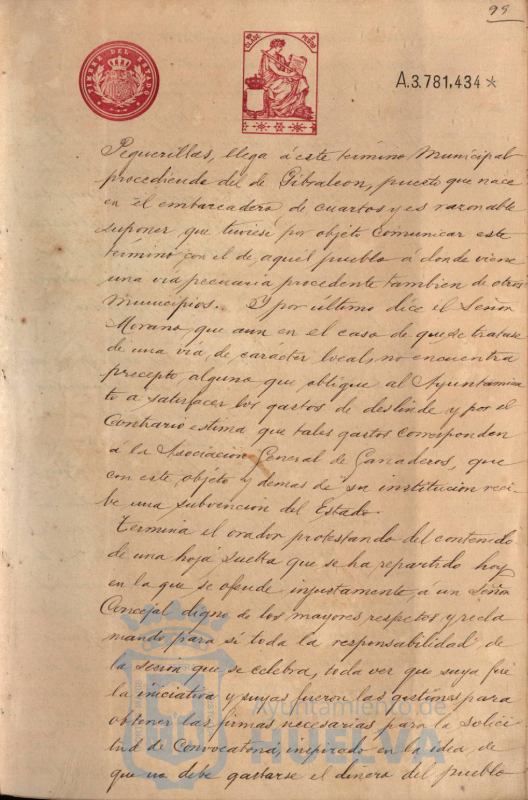 99
TIMBRE DEL ESTADO
A.3.781,434*
Pequerillas, llega á este término Municipal
procediende del de Gibraleon, puesto que nace
en el embarcadero de cuartos y es razonable
suponer, que tuviese por objeto comunicar este
término con el de aquel pueblo á donde viene
una vía pecuaria procedente tambien de otros
Municipios. Y por último dice el Señor
Morano, que aun en el caso de que se tratase
de una vía, de carácter local, no encuentra
precepto alguno que obligue al Ayuntamien
to a satisfacer los gastos de deslinde y por el
Contrario estima que tales gastos corresponden
á la Asociacion General de Ganaderos, que
con este objeto y demas de su institucion reci
be una subvencion del Estado.
Termina el orador protestando del contenido
de una hoja suelta que se ha repartido hoy
en la que se ofende injustamente á un Señor
Concejal digno de los mayores respetos y recla
mando para sí toda la responsabilidad de
la sesion que se celebra, toda vez que suya fué
la iniciativa y suyas fueron las gestiones para
obtener las firmas necesarias para la solici
tud de Convocatoria, inspirado en la idea de
que no debe gastarse el dinero del pueblo
Ayuntamiento de
HUELVA